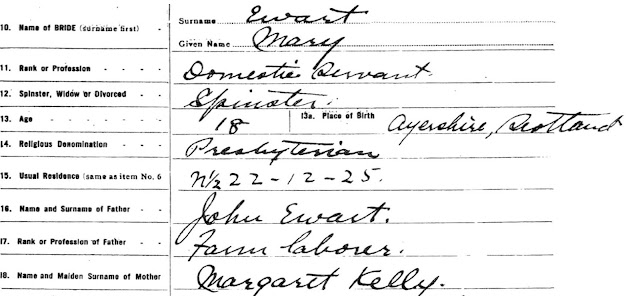 10. Name of BRIDE (surname first) - Surname Ewart
Given Name Mary
11. Rank or Profession - - - Domestic Servant.
12. Spinster, Widow or Divorced - Spinster.
13. Age - - - - 18 13a. Place of Birth Ayershire, Scotland
14. Religious Denomination - - Presbyterian
15. Usual Residence (same as item No. 6 N½ 22-12-25.
16. Name and Surname of Father - - John Ewart.
17. Rank or Profession of Father - - Farm laborer.
18. Name and Maiden Surname of Mother Margaret Kelly.